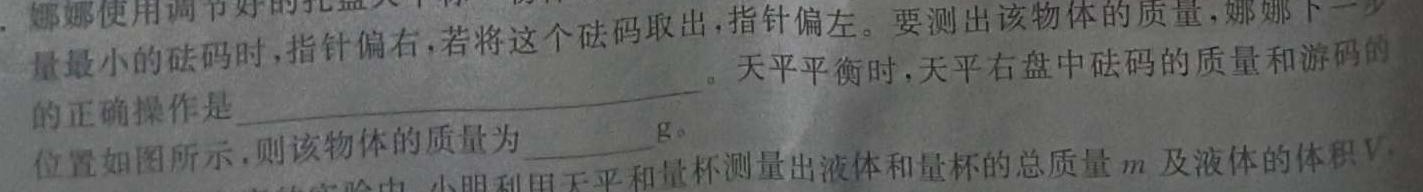 娜娜使用调节好的托盘天
量最小的砝码时,指针偏右,若将这个砝码取出,指针偏左。要测出该物体的质量,娜娜下一步
的正确操作是____________。天平平衡时,天平右盘中砝码的质量和游码的
位置如图所示,则该物体的质量为______g。
小明利用天平和量杯测量出液体和量杯的总质量 m 及液体的体积V,